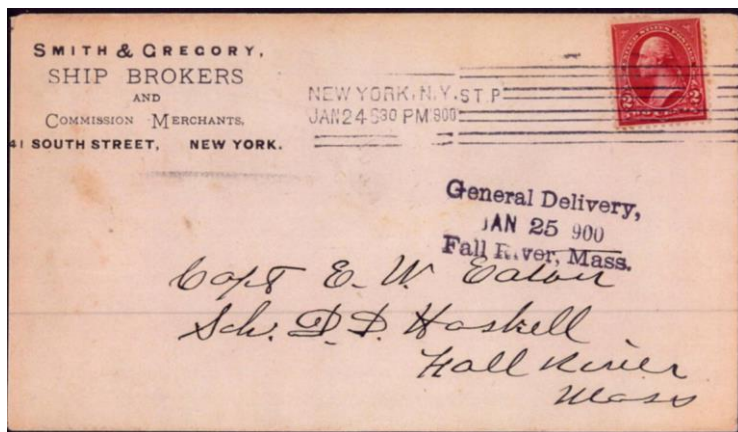 SMITH & GREGORY,
SHIP BROKERS
AND
COMMISSION MERCHANTS,
41 SOUTH STREET, NEW YORK.
NEW YORK, N.Y. STP
JAN 24 630 PM 900
2 2
General Delivery,
JAN 25 900
Fall River, Mass.
Capt E. W. Eaton
Sch. D. D. Haskell
Fall River
Mass